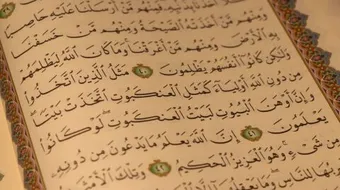 فَمِنْهُم مَّنْ أَرْسَلْنَا عَلَيْهِ حَاصِبًا
وَمِنْهُم مَّنْ أَخَذَتْهُ الصَّيْحَةُ وَمِنْهُم مَّنْ خَسَفْنَا
بِهِ الْأَرْضَ وَمِنْهُم مَّنْ أَغْرَقْنَا وَمَا كَانَ اللَّهُ لِيَظْلِمَهُمْ
وَلَٰكِن كَانُوا أَنفُسَهُمْ يَظْلِمُونَ ٤٠ مَثَلُ الَّذِينَ اتَّخَذُوا
مِن دُونِ اللَّهِ أَوْلِيَاءَ كَمَثَلِ الْعَنكَبُوتِ اتَّخَذَتْ بَيْتًا
وَإِنَّ أَوْهَنَ الْبُيُوتِ لَبَيْتُ الْعَنكَبُوتِ لَوْ كَانُوا
يَعْلَمُونَ ٤١ إِنَّ اللَّهَ يَعْلَمُ مَا يَدْعُونَ مِن دُونِهِ
مِن شَيْءٍ وَهُوَ الْعَزِيزُ الْحَكِيمُ ٤٢ وَتِلْكَ الْأَمْثَالُ
نَضْرِبُهَا لِلنَّاسِ وَمَا